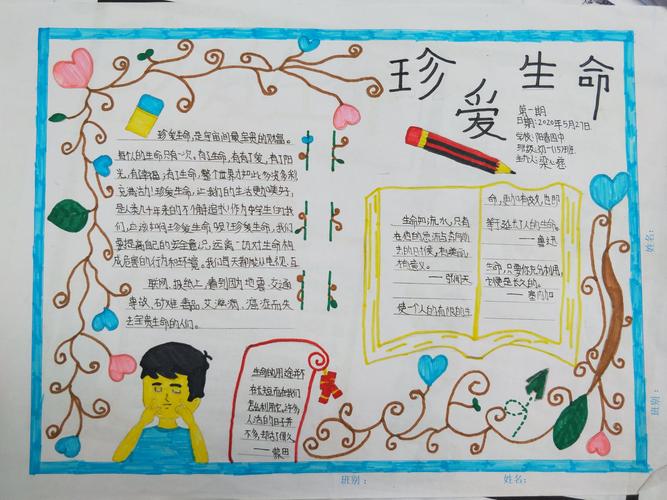 珍爱生命
第一期
日期:2020年5月27日
学校:阳春四中
班级:初一(15)班
制作人:梁心慈
珍爱生命,是宇宙间最宝贵的财富。
每个人的生命只有一次,有了生命,有了爱,有了阳
光,有幸福,有了生命,整个世界才如此多姿多彩
充满活力!珍爱生命,让我们的生活更加美好,
是人类几千年来的不懈追求!作为中学生们我
们,应该如何珍爱生命呢?珍爱生命,我们
要提高自己的安全意识,远离一切对生命构
成危害的行为和环境。我们每天都能从电视、互
联网、报纸上,看到因为地震、交通
事故、矿难、毒品、艾滋病、溺水而失
去宝贵生命的人们。
生命的用途并不
在长短而在我们
怎么利用它。许多
人活的日子并
不多,却活了很久。
——蒙田
生命如流水,只有
在他的急流与奔向前
去的时候,才美丽,
才有意义。
——张闻天
使一个人的有限的生
命,更加有效,也即
等于延长了人的生命。
——鲁迅
生命,只要你充分利用,
它便是长久的。
——塞内加
姓名:
班别:
班别:
姓名: